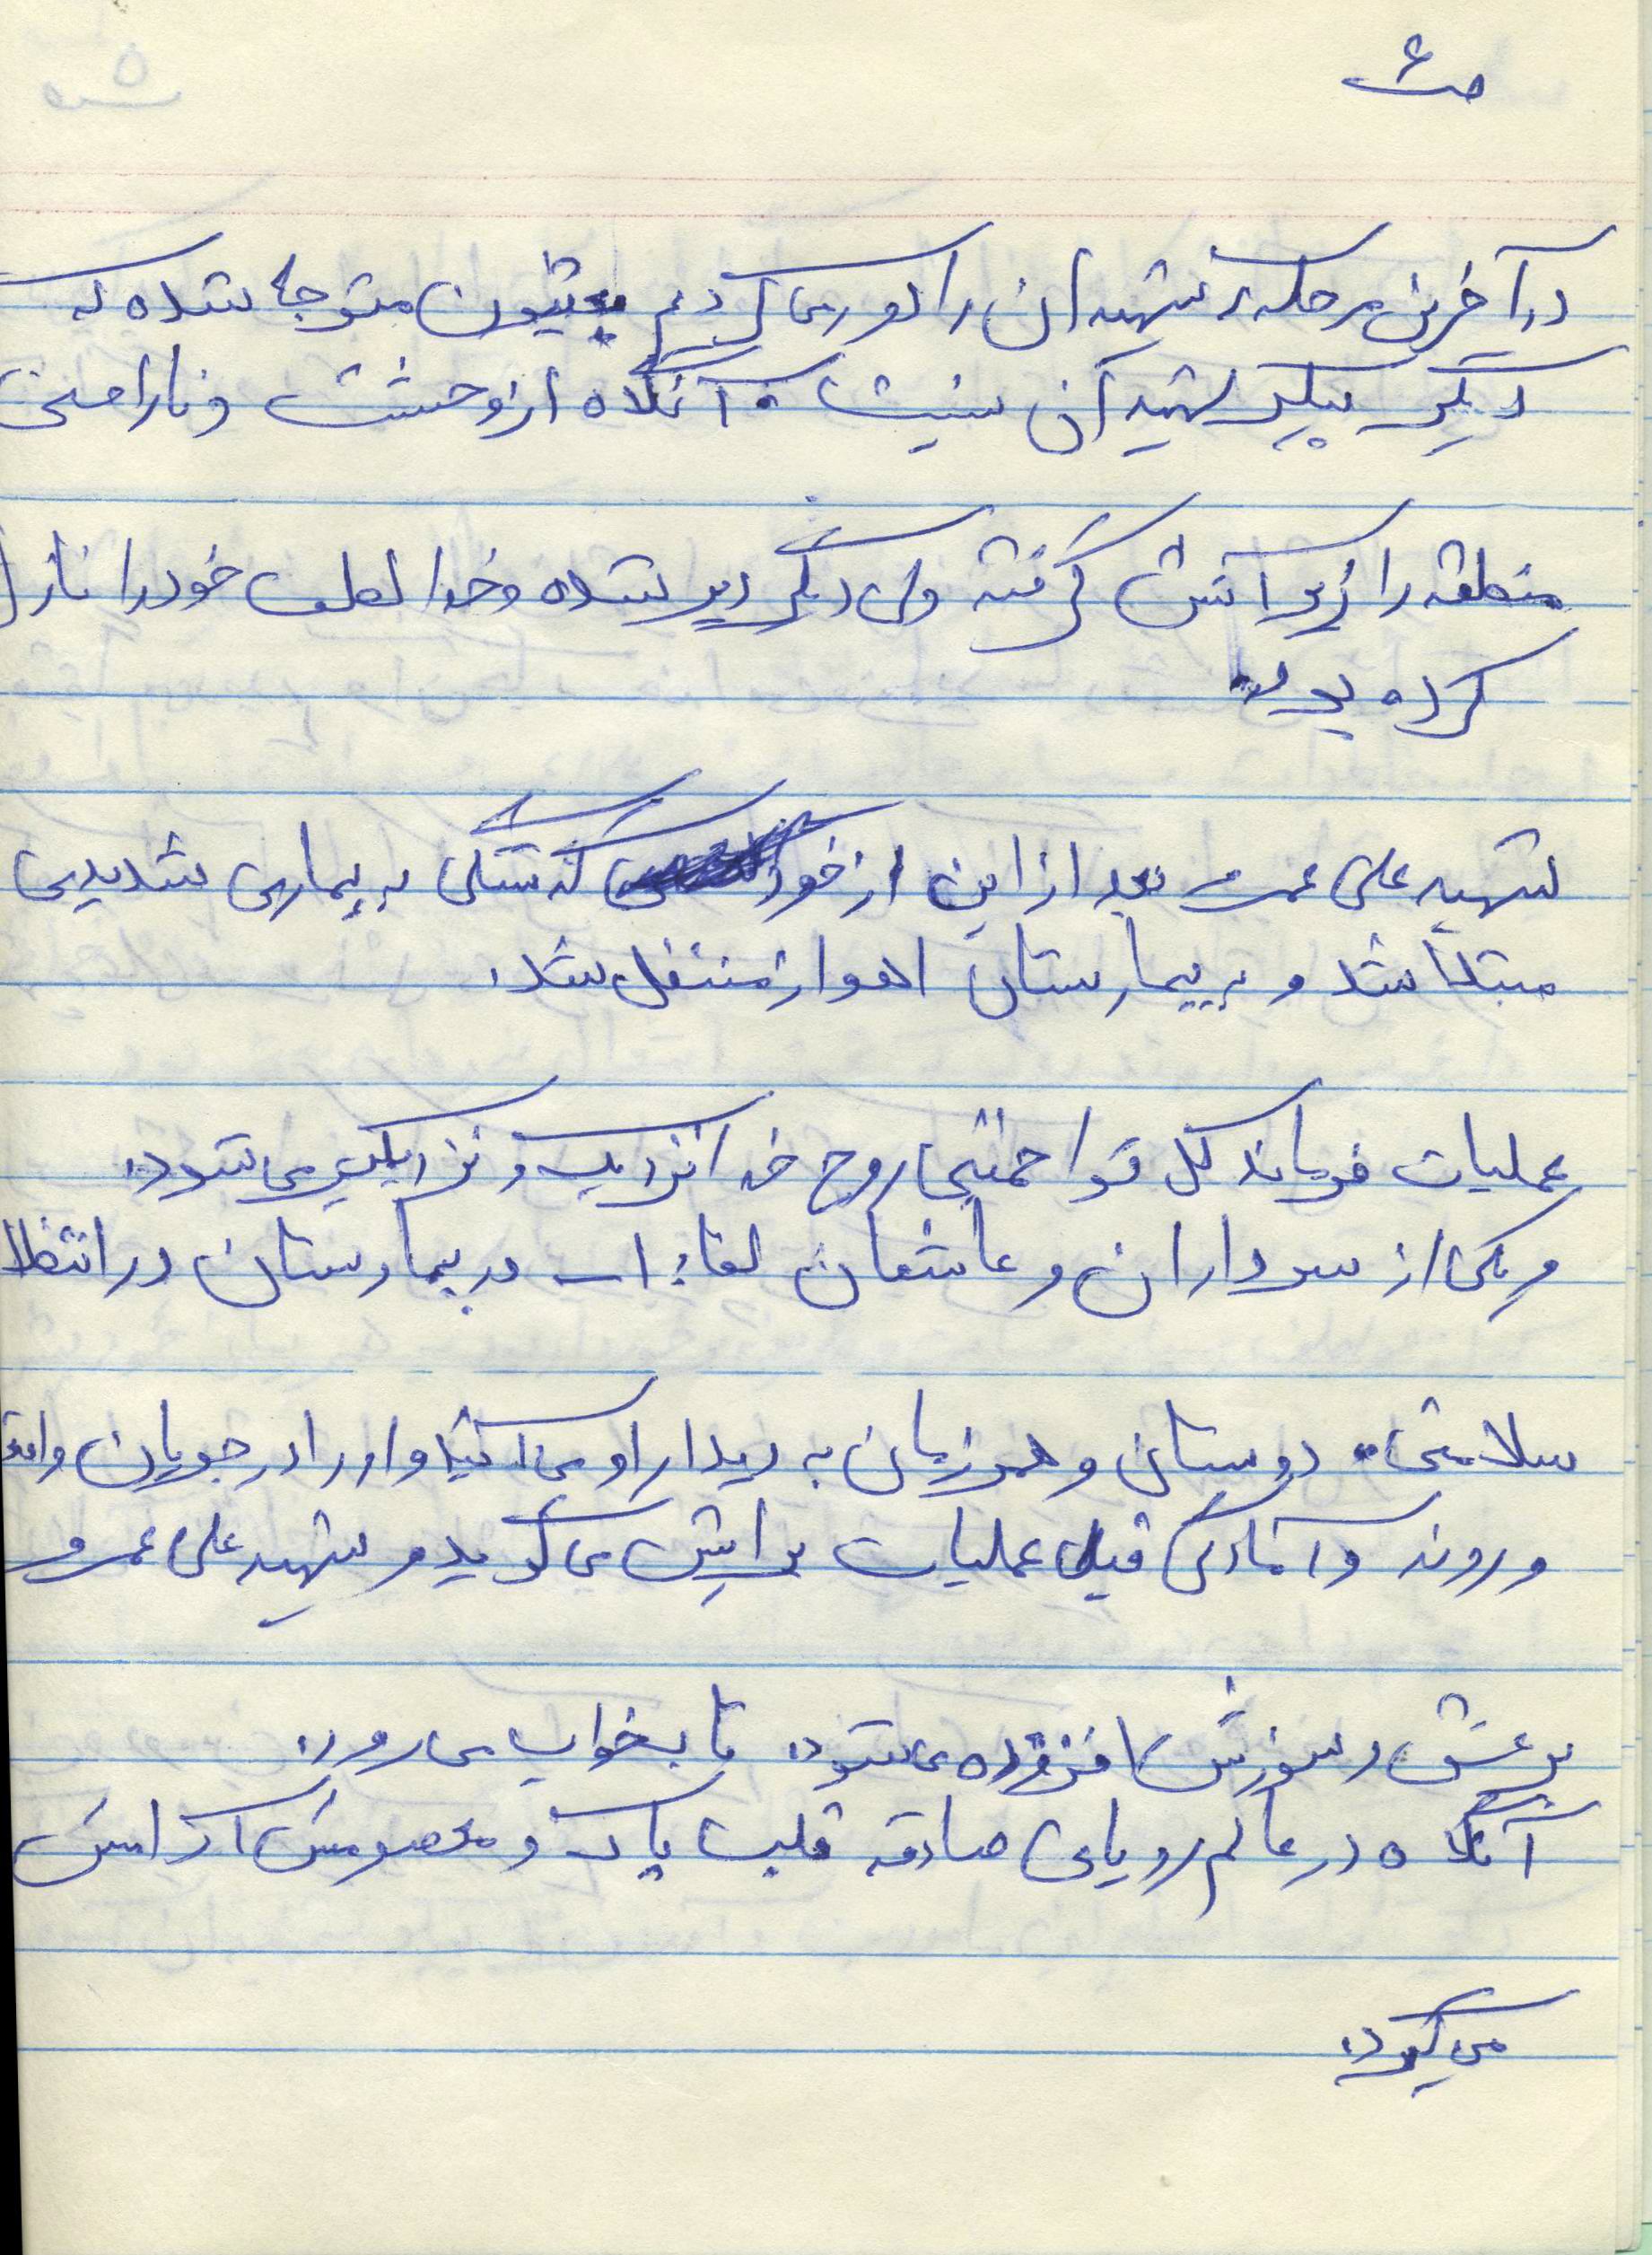 ص ۶
در آخرین مرحله که شهیدان را آوری می کردیم بعثیون متوجه شده که
دیگر پیکر شهیدان نیست. آنگاه از وحشت و ناراحتی
منطقه را زیر آتش گرفته ولی دیگر دیر شده و خدا لطف خود را نازل
کرده بود.
شهید علی عمرو بعد از این از خود گذشتگی به بیماری شدیدی
مبتلا شد و به بیمارستان اهواز منتقل شد.
عملیات فرمانده کل قوا خمینی روح خدا نزدیک و نزدیکتر می شود.
و یکی از سرداران و عاشقان لقاء الله در بیمارستان در انتظار
سلامتی. دوستان و همرزمان به دیدار او می آیند و او را در جریان واقعه
و روند و آمادگی قبل عملیات برایش می گوید و شهید علی عمرو
بر عشق و سوزش افزوده می شود. تا بخواب می رود.
آنگاه در عالم رویای صادقه قلب پاک و معصومش آرامش
می گیرد.